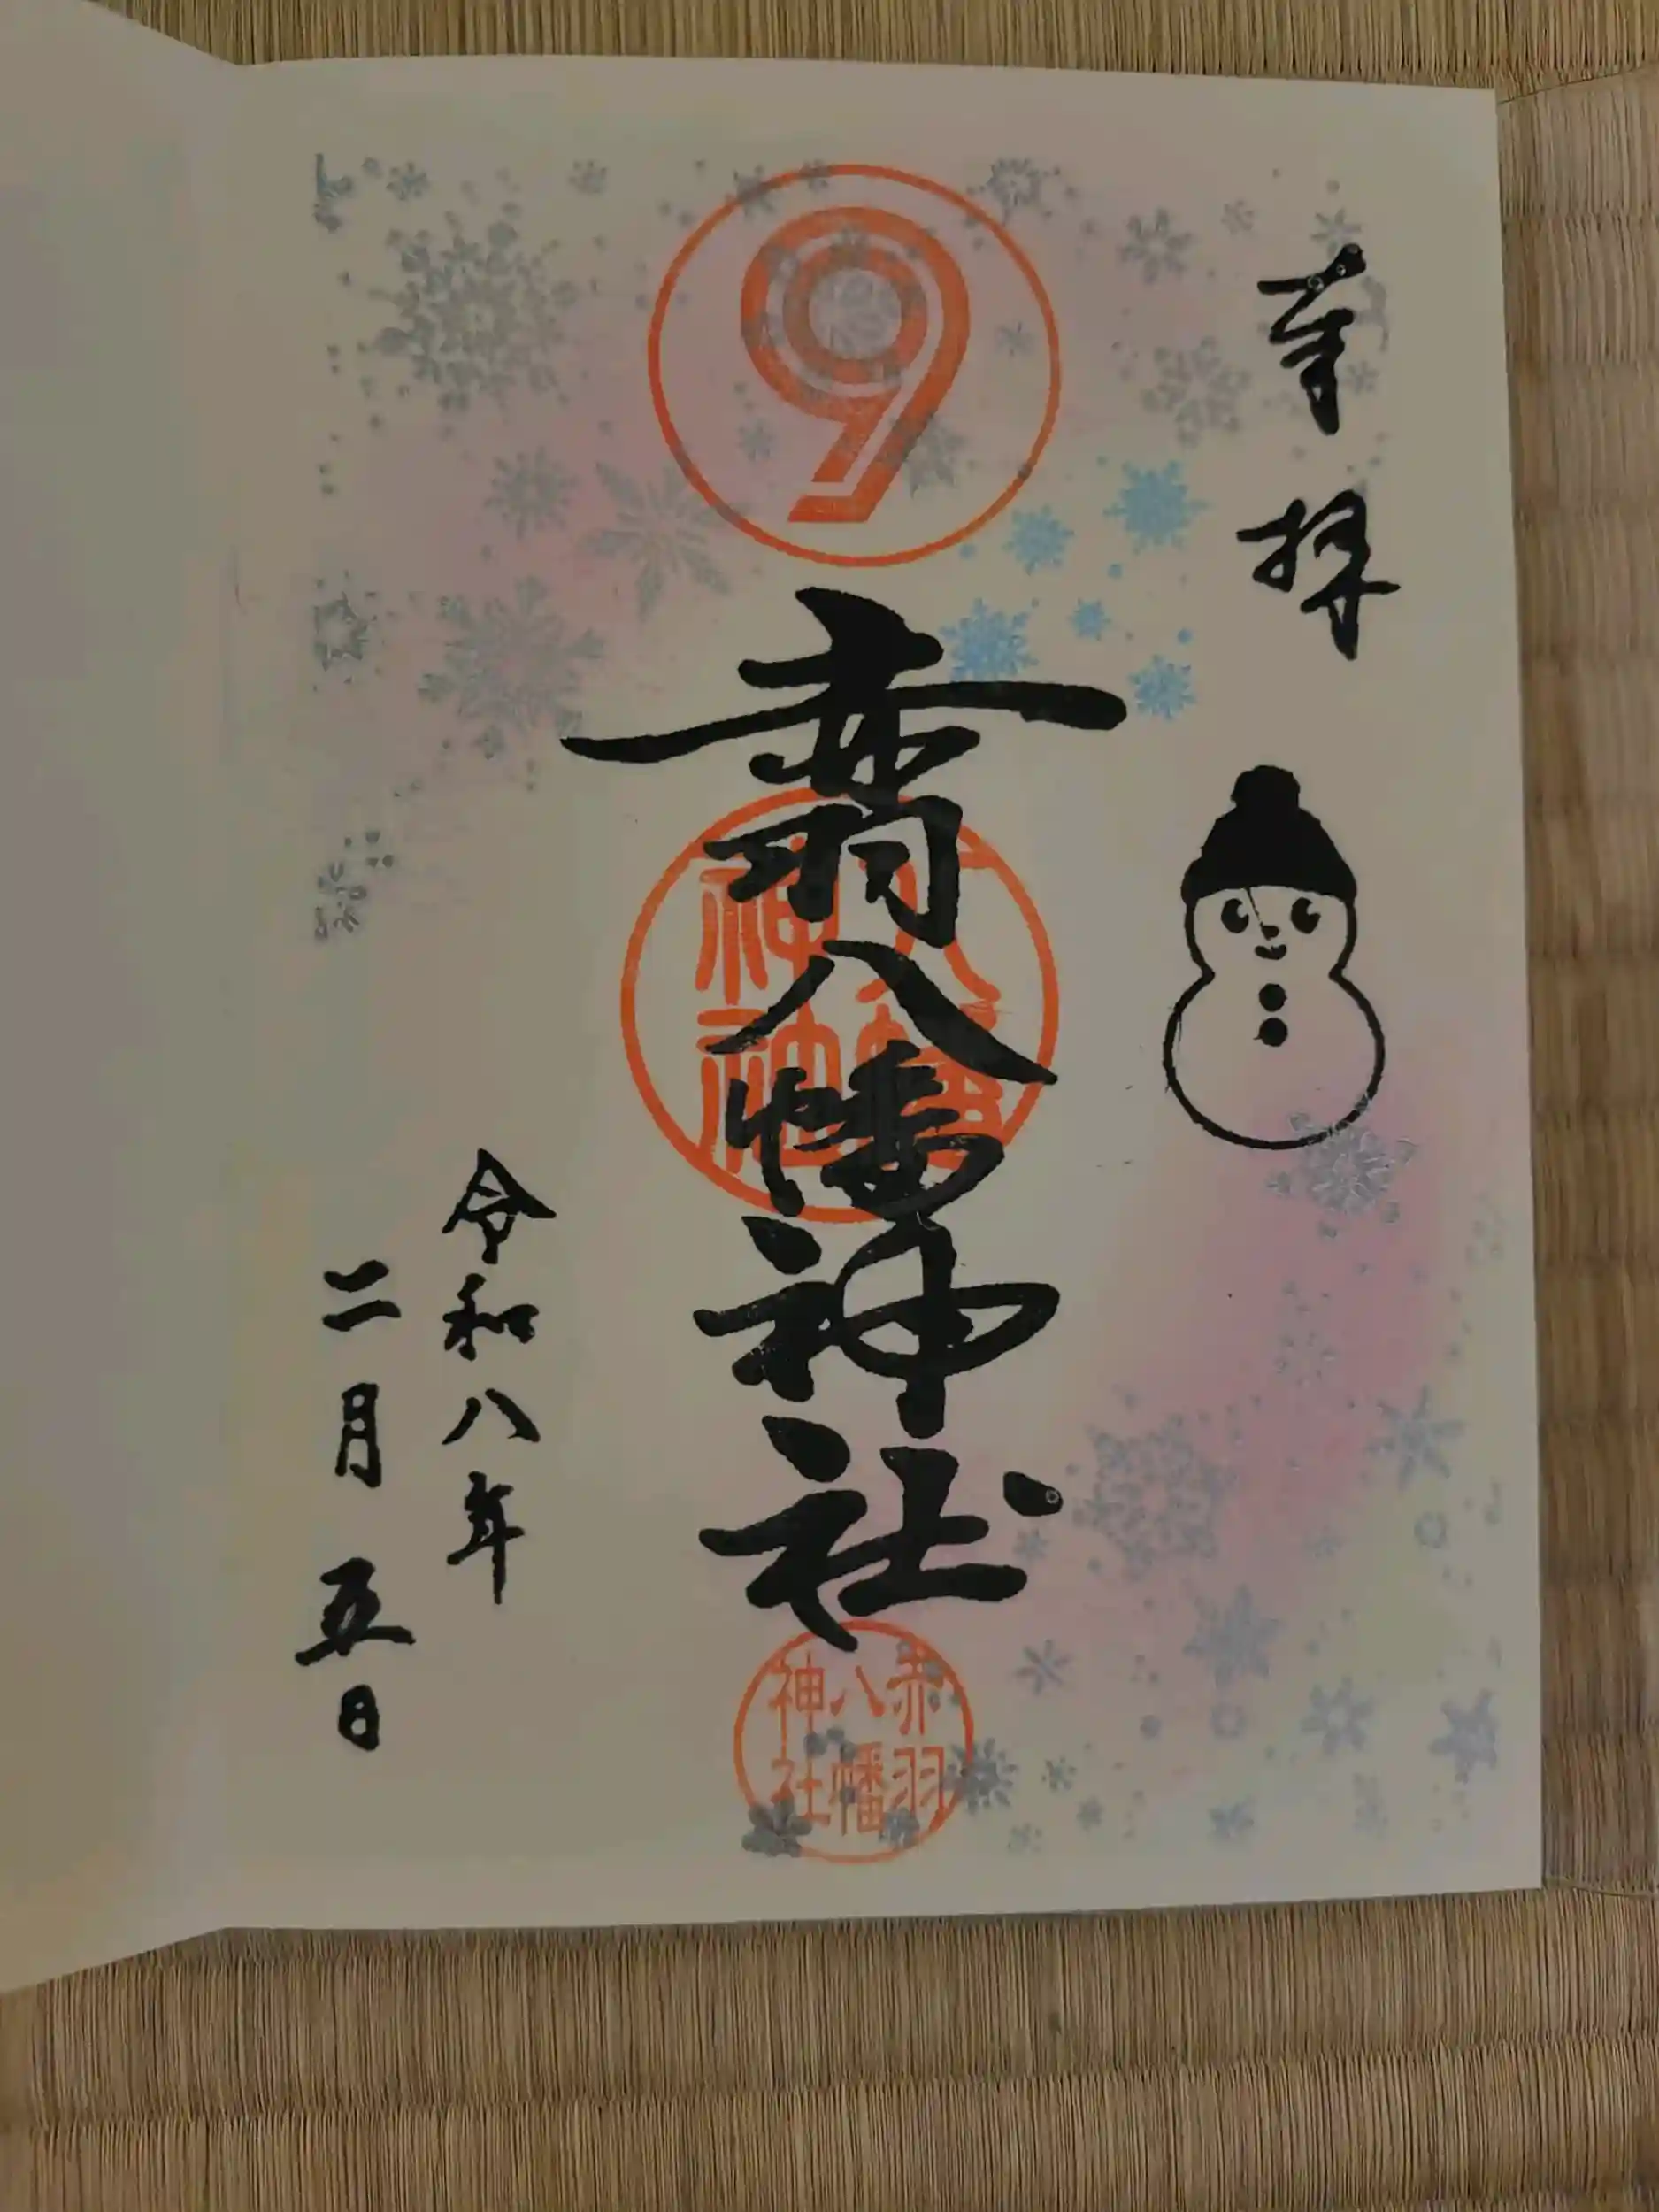 奉拝
9
赤羽八幡神社
八幡
神社
赤羽
八幡
神社
令和八年
二月五日